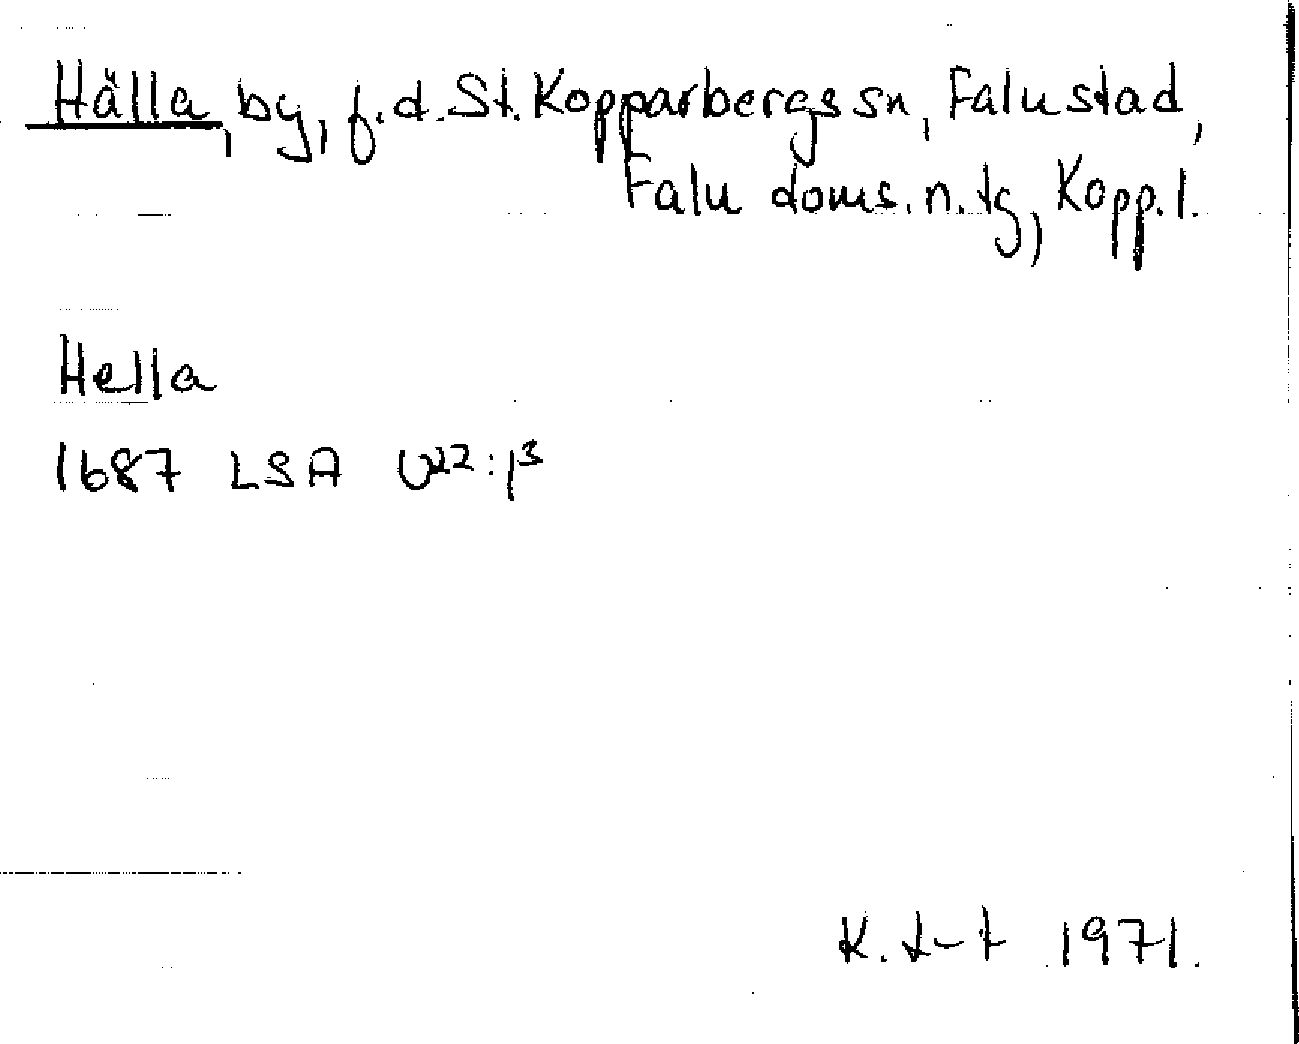 Hälla, by, f.d. St. Kopparbergs sn, Falu stad,
Falu doms. n. tg, Kopp. l.
Hella
1687 LSA U22:1³
K. L-t 1971.